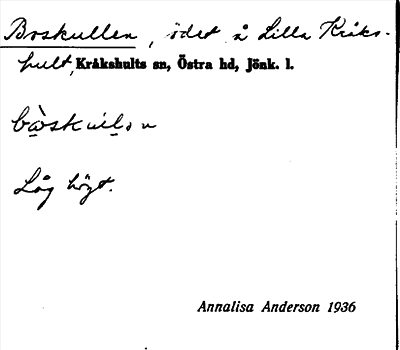 Boskullen, ödet å Lilla Kråks-
hult, Kråkshults sn, Östra hd, Jönk. l.
Låg högt.
Annalisa Anderson 1936